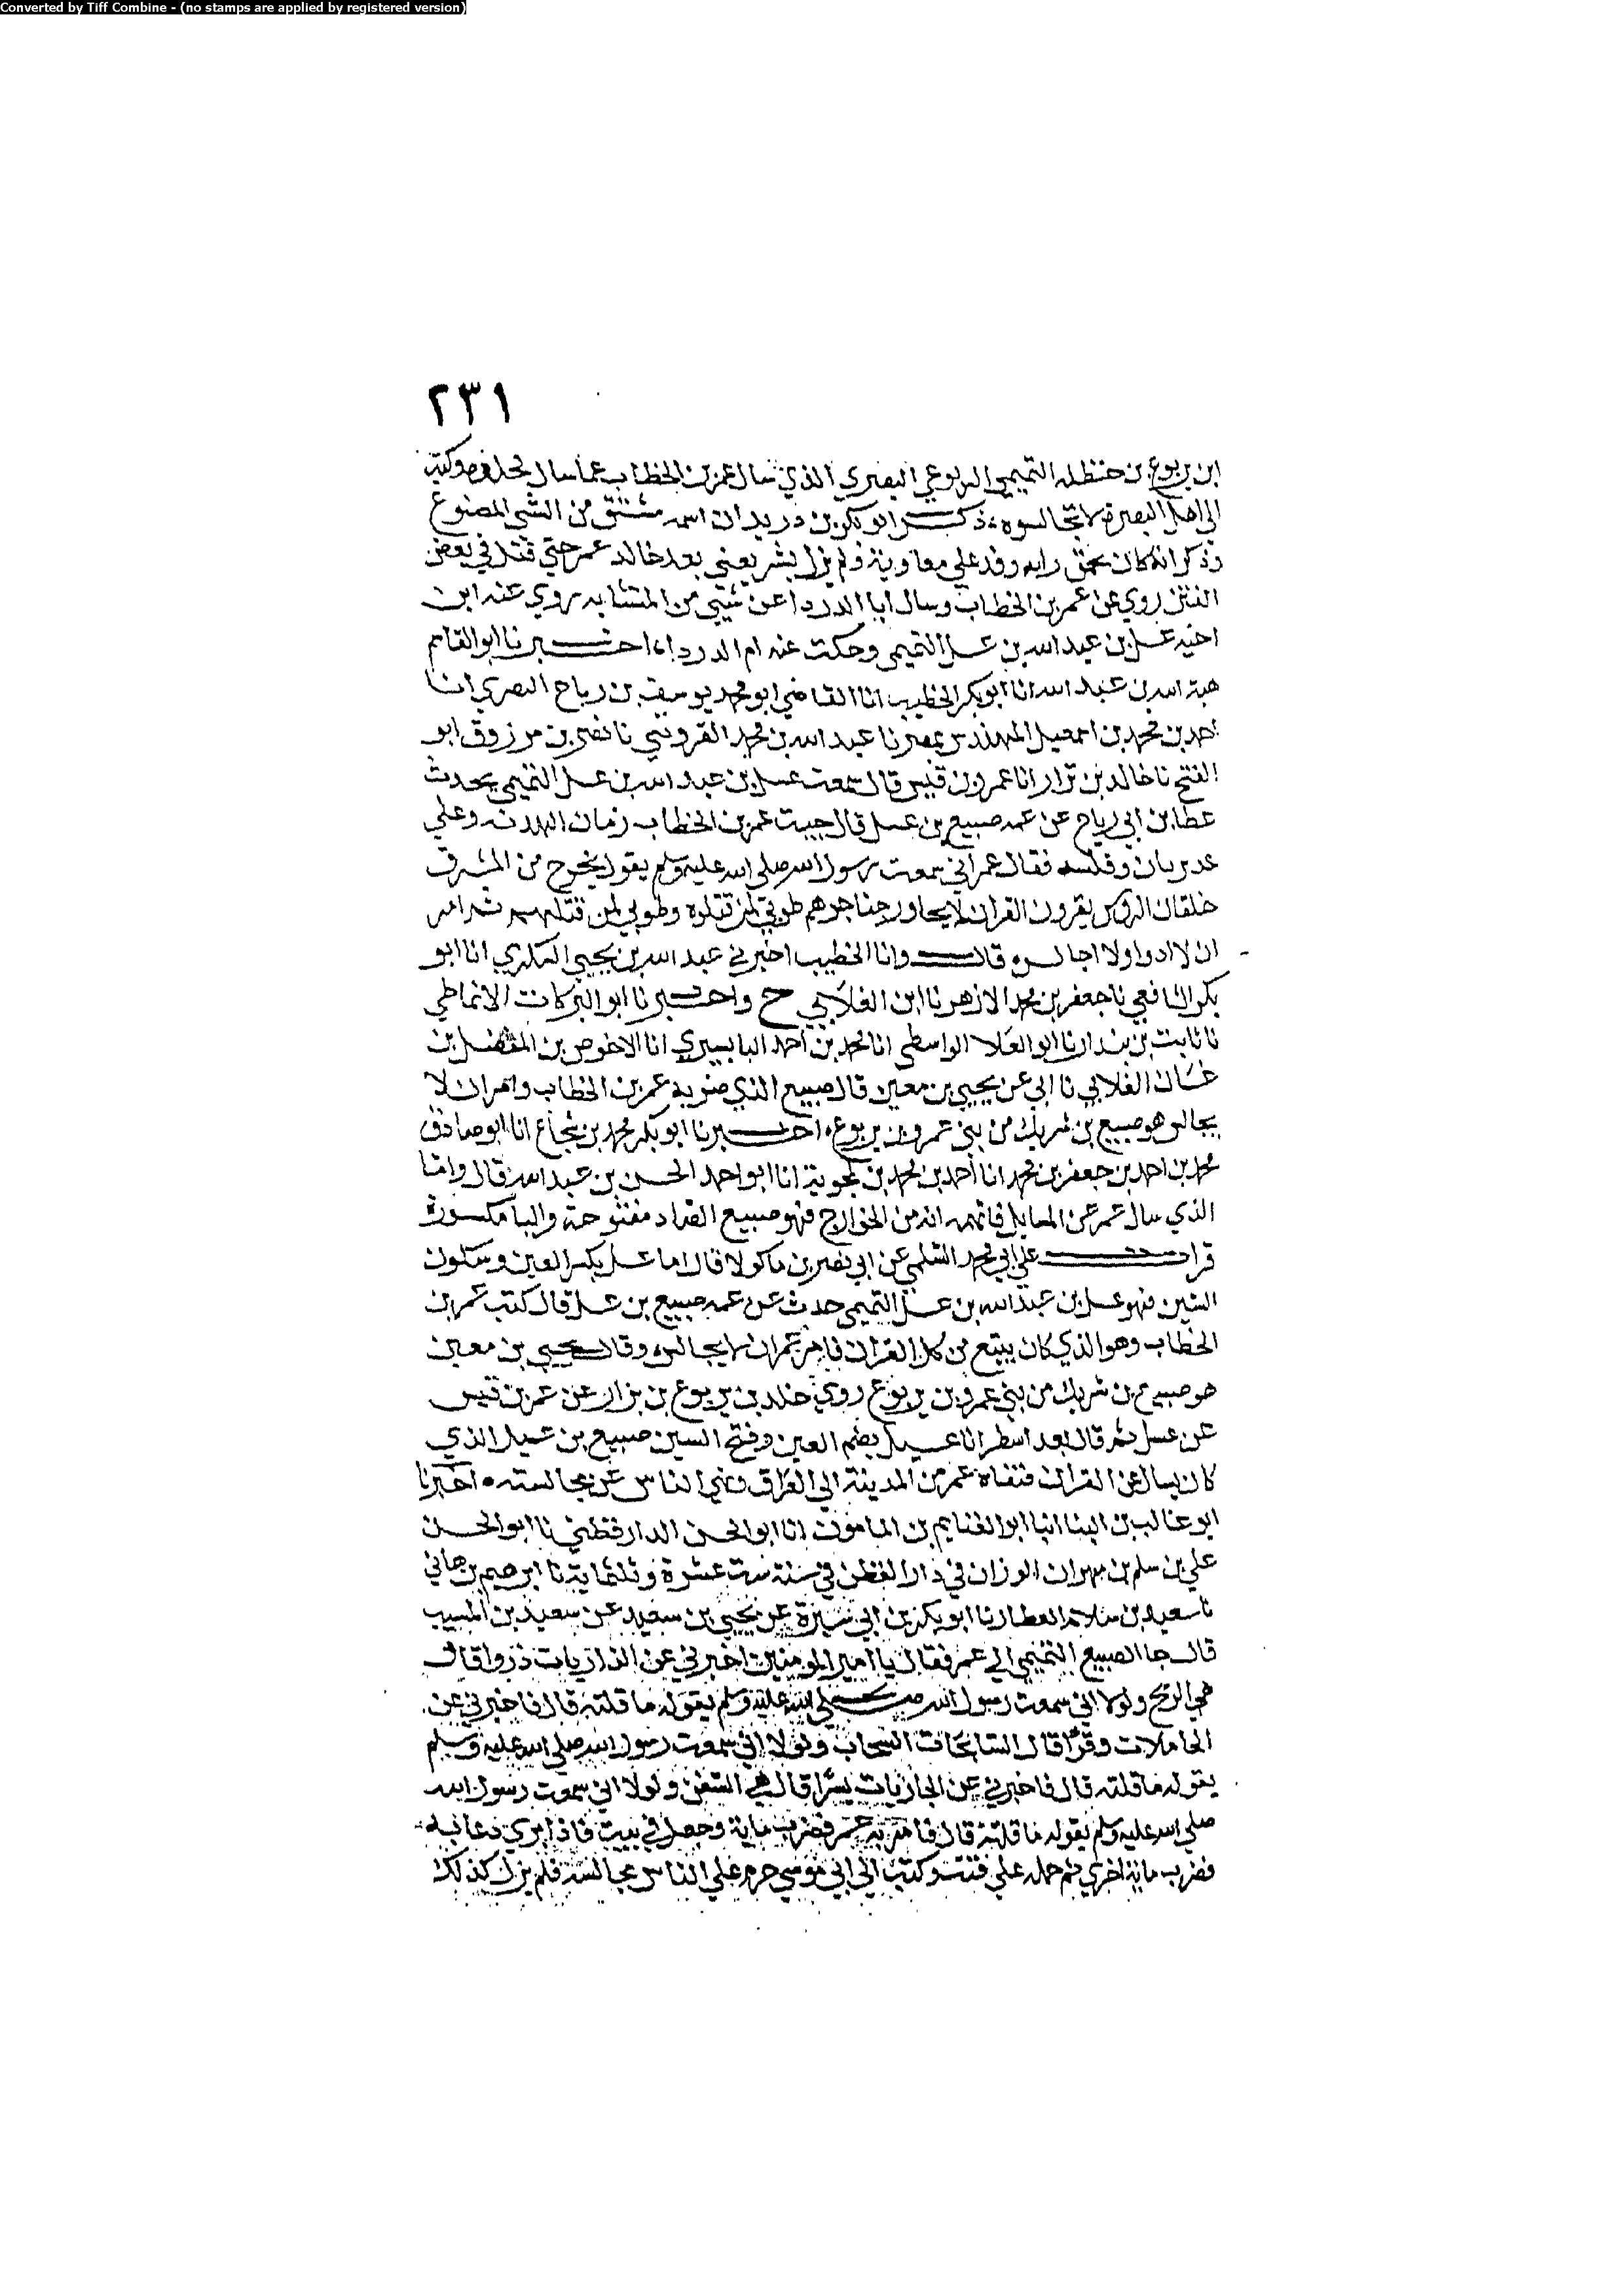 Converted by Tiff Combine - (no stamps are applied by registered version)
٢٣١
ابن يربوع بن حنظله التميمي اليربوعي البصري الذي سال عمر بن الخطاب عما سال فجلده وكتب
الى اهل البصرة لا تجالسوه ذكر ابو بكر بن دريد ان اسمه مشتق من الشي المصبوغ
وذكر انه كان يحمق وانه وفد علي معاوية ولم يزل بشر يعني بعد جلد عمر حتي قتل في بعض
الفتن روي عن عمر بن الخطاب وسال ابا الدردا عن شي من المتشابه روي عنه ابن
اخيه عسل بن عبد الله بن عسل التميمي وحكت عنه ام الدرداء اخبرنا ابو القاسم
هبة الله بن عبد الله انا ابو بكر الخطيب انا القاضي ابو محمد يوسف بن رباح البصري انا
احمد بن محمد بن اسمعيل المهندس بمصر نا عبد الله بن محمد القزويني نا نصر بن مرزوق ابو
الفتح نا خالد بن نزار انا عمر بن قيس قال سمعت عسل بن عبد الله بن عسل التميمي يحدث
عطا بن ابي رباح عن عمه صبيغ بن عسل قال جيت عمر بن الخطاب زمان الهدنه وعلي
غديرتان وقلنسه فقال عمر اني سمعت رسول الله صلى الله عليه وسلم يقول يخرج من المشرق
حلقان الروس يقرون القران لا يجاوز حناجرهم طوبي لمن قتلوه وطوبي لمن قتلهم ثم امر
ان لا اوا ولا اجالس قال وانا الخطيب اخبرني عبد الله بن يحيي السكري انا ابو
بكر الشافعي نا جعفر بن محمد الازهر نا ابن الغلابي ح واخبرنا ابو البركات الانماطي
نا ثابت بن بندار نا ابو العلا الواسطي انا محمد بن احمد البابسيري انا الاحوص بن المفضل بن
غسان الغلابي نا ابي عن يحيي بن معين قال صبيغ الذي ضربه عمر بن الخطاب وامر ان لا
يجالس هو صبيغ بن شريك من بني عمرو بن يربوع اخبرنا ابو بكر محمد بن شجاع انا ابو صادق
محمد بن احمد بن جعفر بن محمد انا احمد بن محمد بن زنجوية انا ابو احمد الحسن بن عبد الله قال واما
الذي سال عمر عن المسايل فاتهمه انه من الخوارج فهو صبيغ الصاد مفتوحة والبا مكسورة
قرات علي ابي محمد السلمي عن ابي نصر بن ماكولا قال اما عسل بكسر العين وسكون
السين فهو عسل بن عبد الله بن عسل التميمي حدث عن عمه صبيغ بن عسل قال كتب عمر بن
الخطاب وهو الذي كان يتتبع مشكل القران فامر عمر ان لا يجالس وقال يحيي بن معين
هو صبيغ بن شريك من بني عمرو بن يربوع روي خلد بن نزار عن عمر بن قيس
عن عسل ثم قال بعد اسطر انا عسيل بضم العين وفتح السين صبيغ بن عسيل الذي
كان يسال عن القران فنفاه عمر من المدينة الي العراق ونهي الناس عن مجالسته اخبرنا
ابو غالب بن البنا انبا ابو الغنايم بن المامون انا ابو الحسن الدارقطني نا ابو الحسن
علي بن سلم بن مهران الوزان في دار القطن في سنة ست عشرة وثلثماية نا ابرهيم بن هاني
نا سعيد بن سلام العطار نا ابو بكر بن ابي سبرة عن يحيي بن سعيد عن سعيد بن المسيب
قال جا الصبيغ التميمي الي عمر فقال يا امير المومنين اخبرني عن الذاريات ذروا قال
هي الريح ولولا اني سمعت رسول الله صلى الله عليه وسلم يقوله ما قلته قال فاخبرني عن
الحاملات وقرا قال السحاب ولولا اني سمعت رسول الله صلي الله عليه وسلم
يقوله ما قلته قال فاخبرني عن الجاريات يسرا قال هي السفن ولولا اني سمعت رسول الله
صلي الله عليه وسلم يقوله ما قلته قال فامر به عمر فضرب ماية وجعل في بيت فاذا بري دعا به
فضرب ماية اخري ثم حمله علي قتب وكتب الي ابي موسي حرم علي الناس مجالسته فلم يزل كذلك